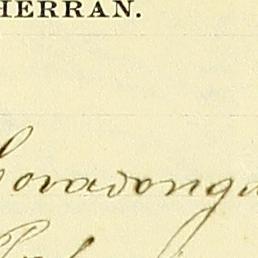 HERRAN.
Covadonga